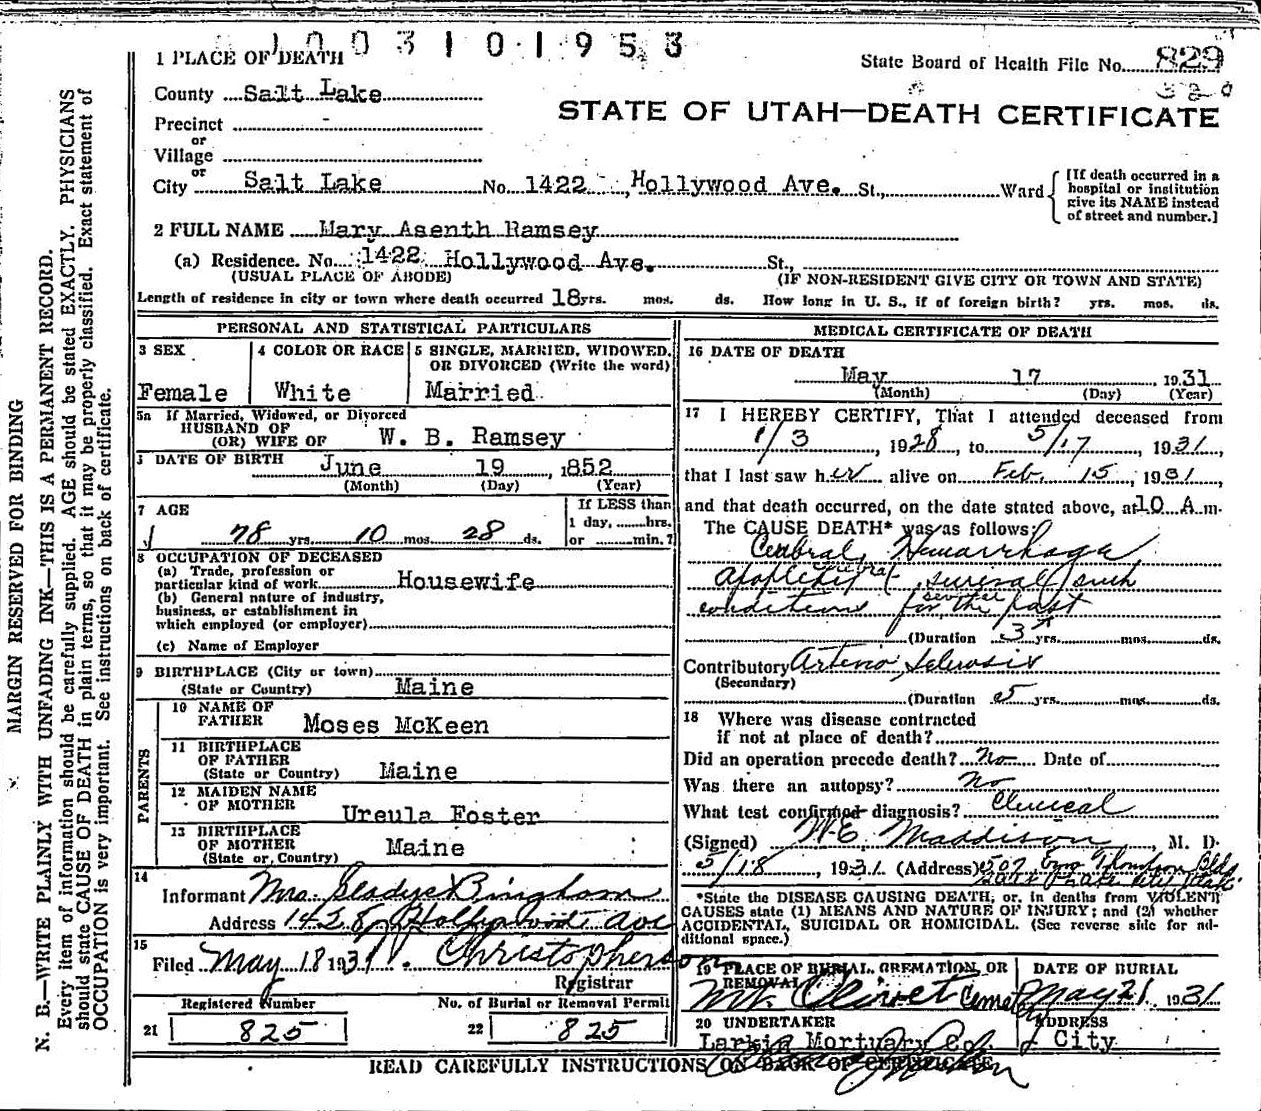 1003101953
1 PLACE OF DEATH
State Board of Health File No. 829
County Salt Lake
STATE OF UTAH—DEATH CERTIFICATE
Precinct -
or
Village
or
City Salt Lake No. 1422, Hollywood Ave. St., Ward
[If death occurred in a hospital or institution give its NAME instead of street and number.]
2 FULL NAME Mary Asenth Ramsey
(a) Residence. No. 1422 Hollywood Ave. St.,
(USUAL PLACE OF ABODE) (IF NON-RESIDENT GIVE CITY OR TOWN AND STATE)
Length of residence in city or town where death occurred 18 yrs. mos. ds. How long in U. S., if of foreign birth? yrs. mos. ds.
PERSONAL AND STATISTICAL PARTICULARS
3 SEX 4 COLOR OR RACE 5 SINGLE, MARRIED, WIDOWED, OR DIVORCED (Write the word)
Female White Married
5a If Married, Widowed, or Divorced
HUSBAND OF
(OR) WIFE OF W. B. Ramsey
DATE OF BIRTH June 19, 1852
(Month) (Day) (Year)
7 AGE If LESS than
1 day, hrs.
78 yrs. 10 mos. 28 ds. or min.?
8 OCCUPATION OF DECEASED
(a) Trade, profession or
particular kind of work Housewife
(b) General nature of industry,
business, or establishment in
which employed (or employer)
(c) Name of Employer
9 BIRTHPLACE (City or town)
(State or Country) Maine
PARENTS
10 NAME OF
FATHER Moses McKeen
11 BIRTHPLACE
OF FATHER
(State or Country) Maine
12 MAIDEN NAME
OF MOTHER Ursula Foster
13 BIRTHPLACE
OF MOTHER
(State or Country) Maine
14
Informant Mrs. Gladys Bingham
Address 1428 Hollywood Ave
15
Filed May 18 1931. Christopherson
Registrar
Registered Number No. of Burial or Removal Permit
21 825 22 825
MEDICAL CERTIFICATE OF DEATH
16 DATE OF DEATH
May 17 1931
(Month) (Day) (Year)
17 I HEREBY CERTIFY, That I attended deceased from
1/3, 1928, to 5/17, 1931,
that I last saw her alive on Feb. 15, 1931,
and that death occurred, on the date stated above, at 10 A m.
The CAUSE DEATH* was as follows:
Cerebral Hemorrhage
such
for the past
(Duration 3 yrs. mos. ds.
Contributory Arterio Sclerosis
(Secondary)
(Duration 5 yrs. mos. ds.
18 Where was disease contracted
if not at place of death?
Did an operation precede death? No Date of
Was there an autopsy? No
What test confirmed diagnosis? Clinical
(Signed) W.E. Maddison, M. D.
5/18, 1931 (Address)
*State the DISEASE CAUSING DEATH; or, in deaths from VIOLENT
CAUSES state (1) MEANS AND NATURE OF INJURY; and (2) whether
ACCIDENTAL, SUICIDAL OR HOMICIDAL. (See reverse side for ad-
ditional space.)
19 PLACE OF BURIAL, CREMATION, OR REMOVAL DATE OF BURIAL
Mt. Olivet Cemetery May 21, 1931
20 UNDERTAKER ADDRESS
Larkin Mortuary Co. City
READ CAREFULLY INSTRUCTIONS ON BACK OF CERTIFICATE
MARGIN RESERVED FOR BINDING
N. B.—WRITE PLAINLY WITH UNFADING INK—THIS IS A PERMANENT RECORD.
Every item of information should be carefully supplied. AGE should be stated EXACTLY. PHYSICIANS
should state CAUSE OF DEATH in plain terms, so that it may be properly classified. Exact statement of
OCCUPATION is very important. See instructions on back of certificate.